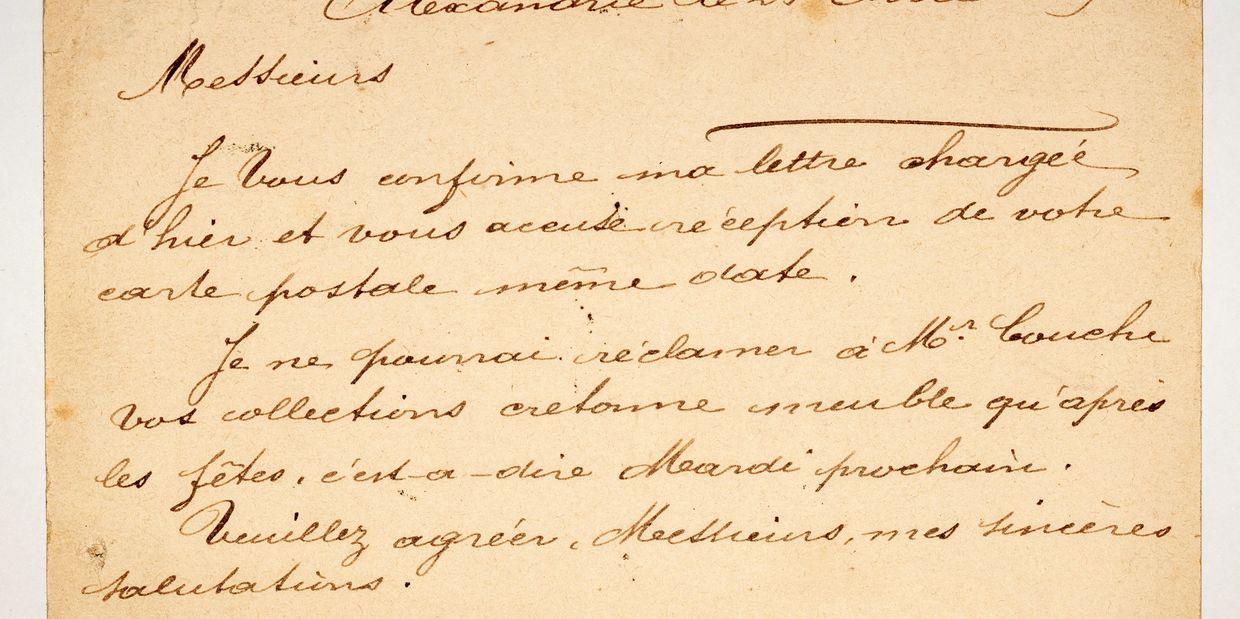 Alexandrie le 29
Messieurs
Je Vous confirme ma lettre chargée
d'hier et vous accuse réception de votre
carte postale même date.
Je ne pourrai réclamer à Mr. Couche
vos collections cretonne meuble qu'après
les fêtes, c'est-a-dire Mardi prochain.
Veuillez agréer, Messieurs, mes sincères
salutations.